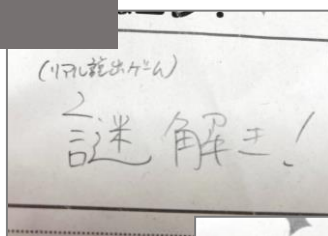 (リアル脱出ゲーム)
謎解き!